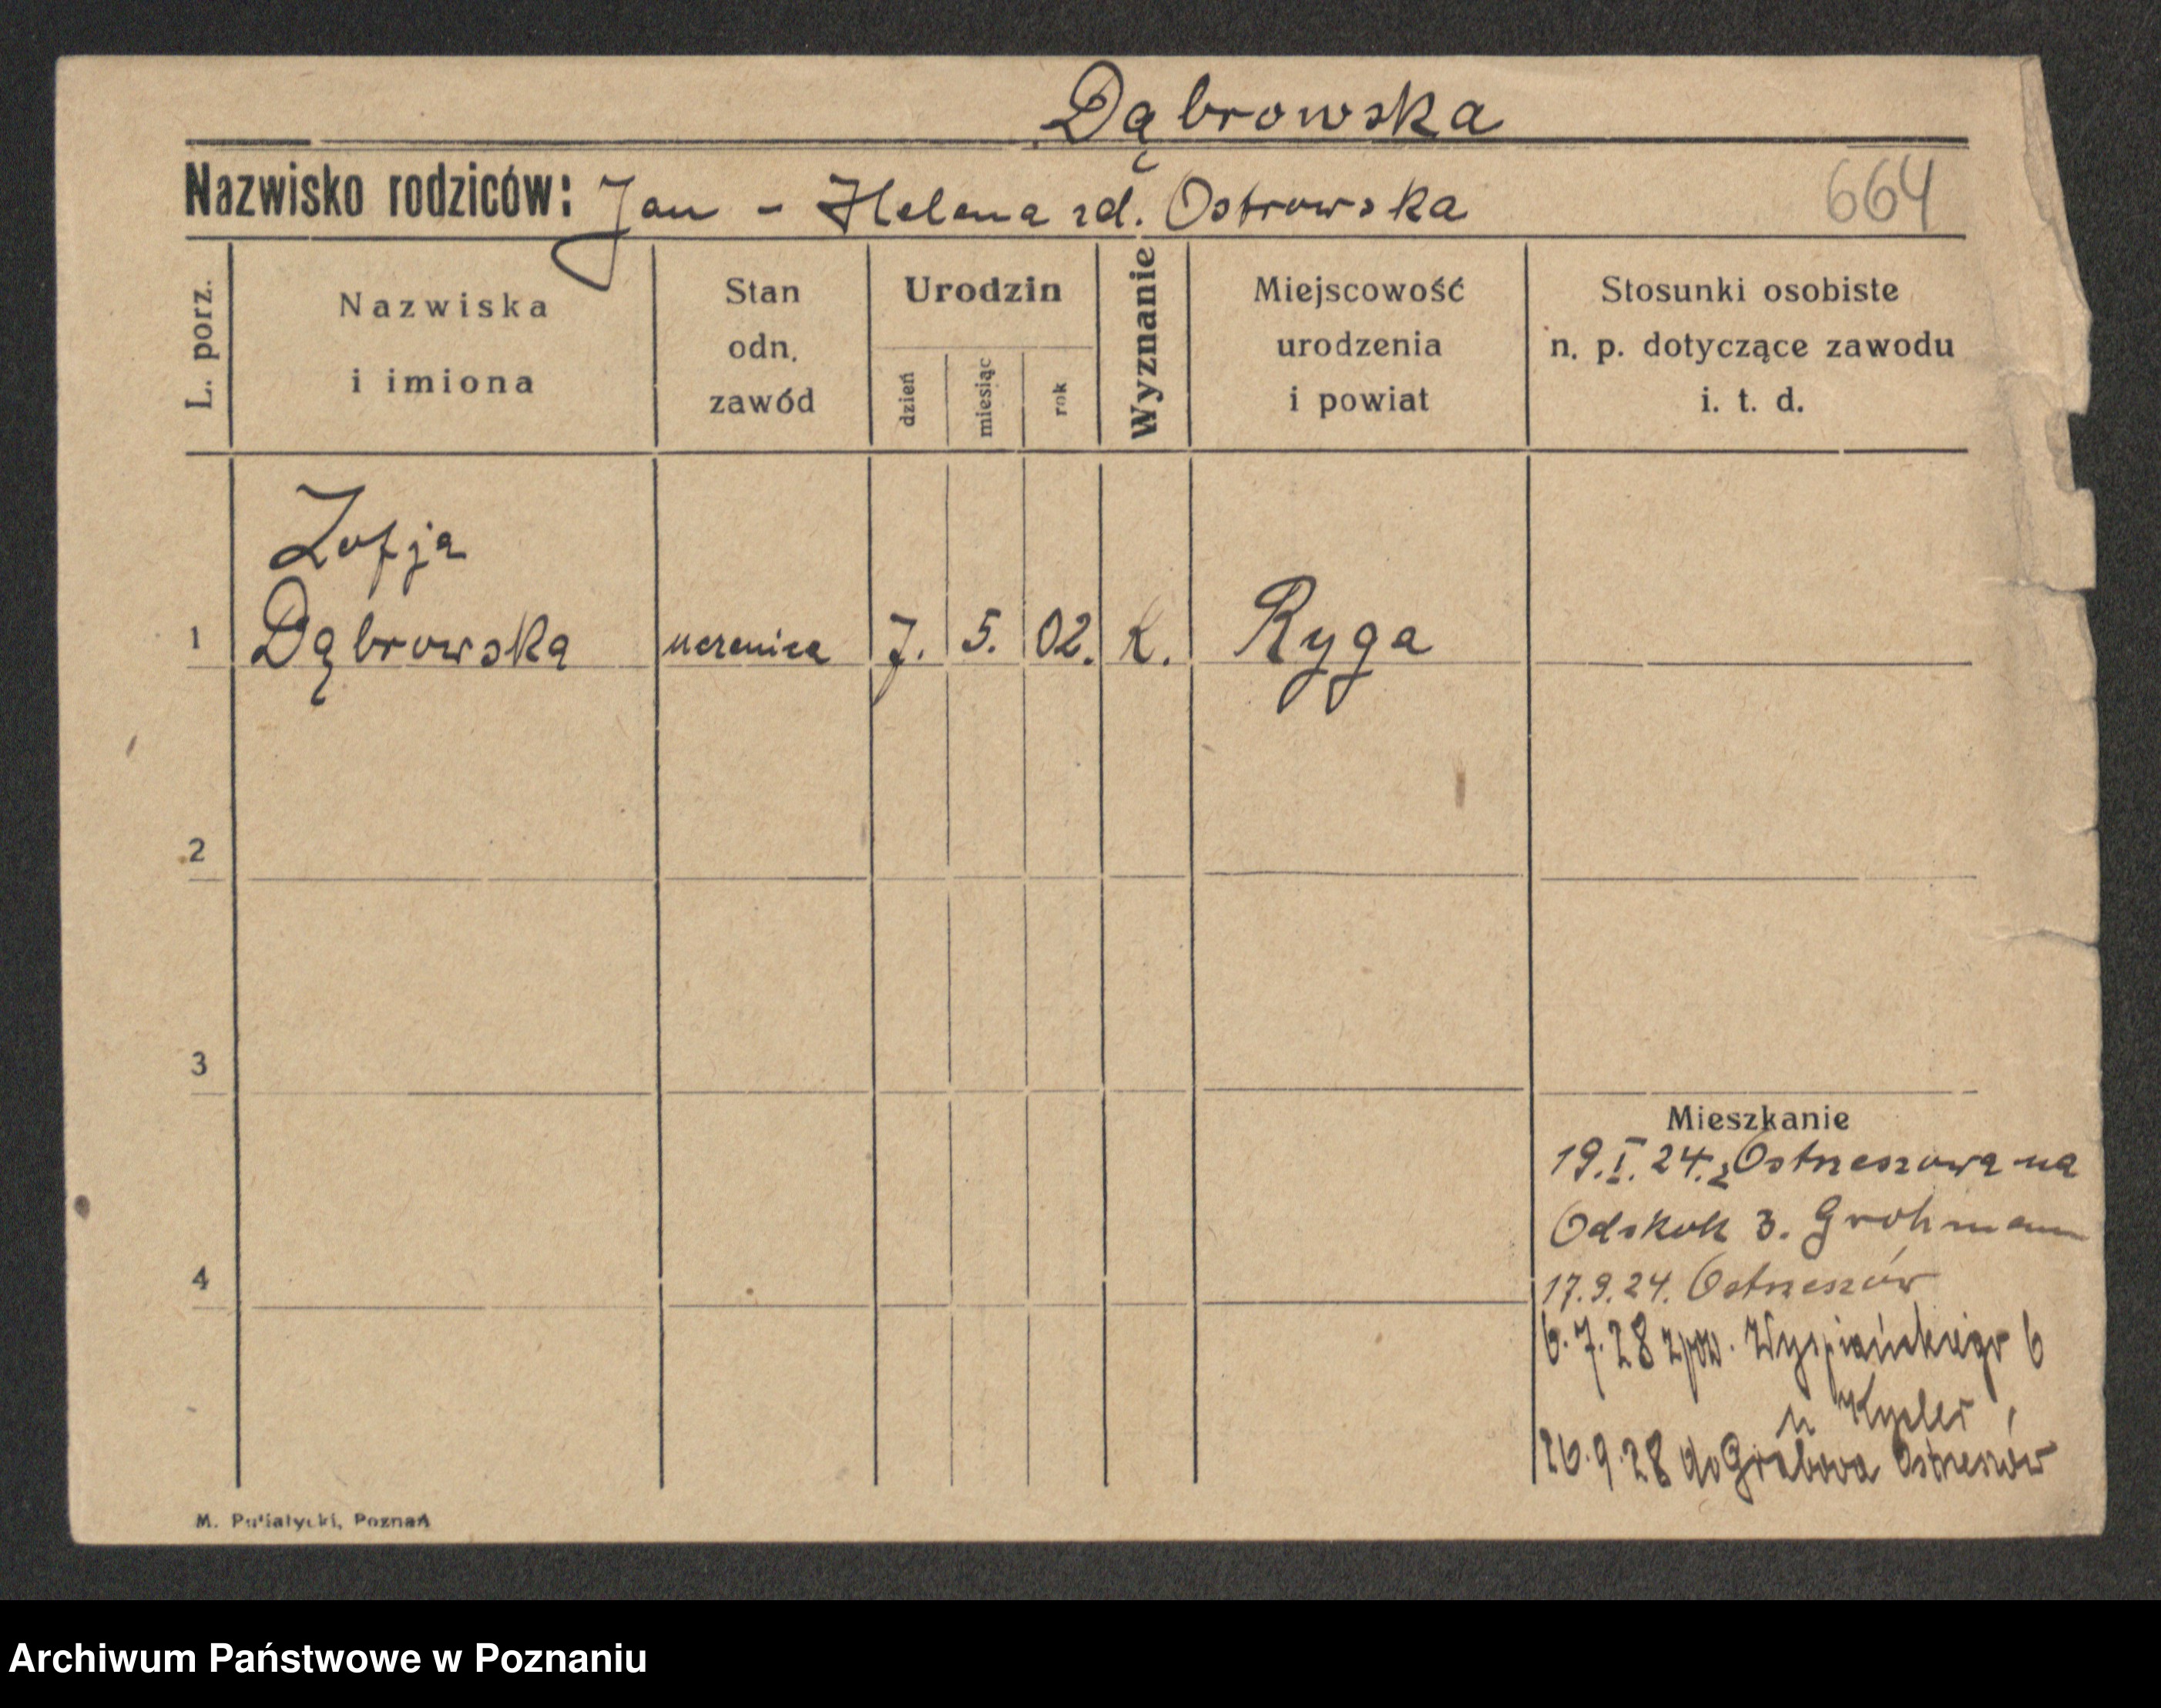 Dąbrowska
Nazwisko rodziców: Jan - Helena zd. Ostrowska
664
L. porz.
Nazwiska
i imiona
Stan
odn.
zawód
Urodzin
dzień
miesiąc
rok
Wyznanie
Miejscowość
urodzenia
i powiat
Stosunki osobiste
n. p. dotyczące zawodu
i. t. d.
Zofja
1 Dąbrowska uczenica 7. 5. 02. k. Ryga
2
3
Mieszkanie
19.I.24. z Ostrzeszowa na
Odskok 3. Grohmann
4
17.9.24. Ostrzeszów
6.7.28 zpow. Wyspiańskiego 6
u
26.9.28 do Grabowa Ostrzeszów
M. Putiatycki, Poznań
Archiwum Państwowe w Poznaniu